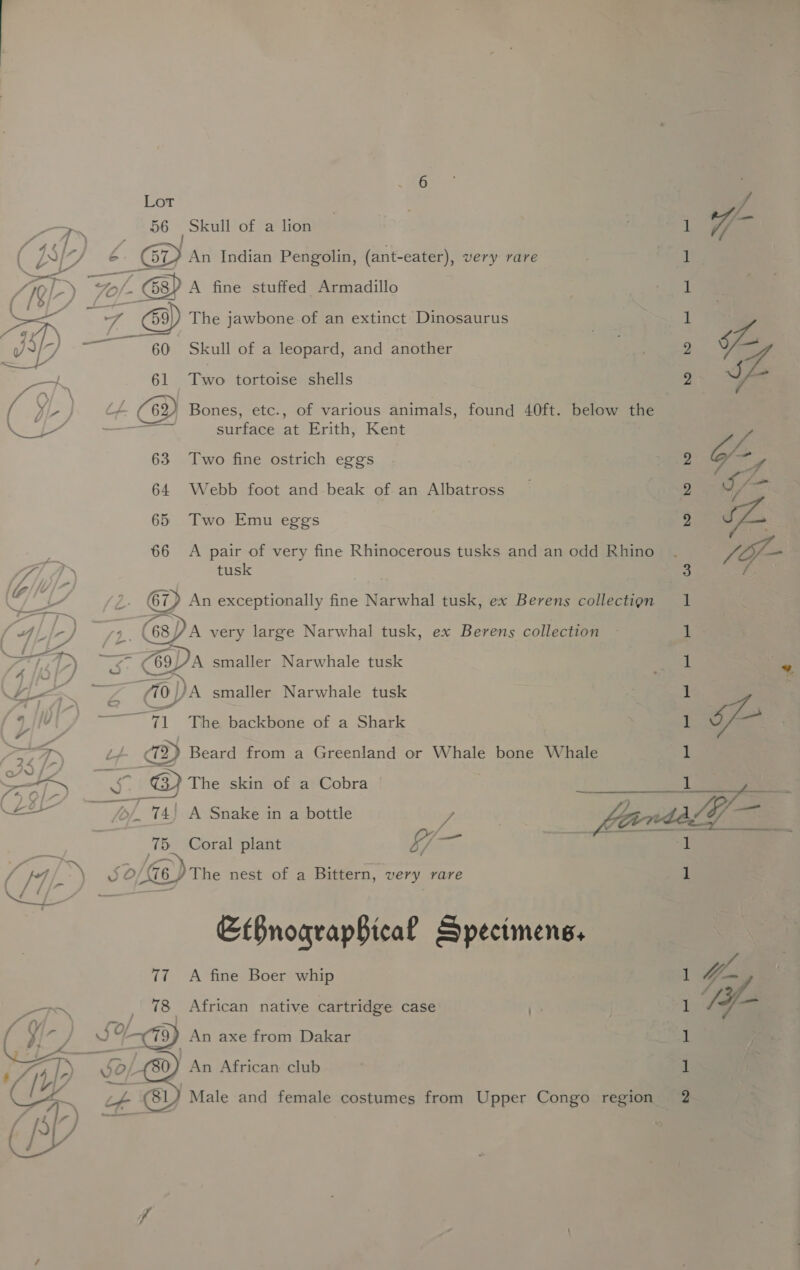 6
Lot
56 Skull of a lion 1 4/-
(15/-) 6 57 An Indian Pengolin, (ant-eater), very rare 1
(18/-) 70/- 58 A fine stuffed Armadillo 1
7 59 The jawbone of an extinct Dinosaurus 1
(15/-) 60 Skull of a leopard, and another 2
61 Two tortoise shells 2 5/-
62 Bones, etc., of various animals, found 40ft. below the
surface at Erith, Kent
63 Two fine ostrich eggs 2 6/-
64 Webb foot and beak of an Albatross 2 5/-
65 Two Emu eggs 2
66 A pair of very fine Rhinocerous tusks and an odd Rhino
tusk 3
67 An exceptionally fine Narwhal tusk, ex Berens collection 1
68 A very large Narwhal tusk, ex Berens collection 1
69 A smaller Narwhale tusk 1
70 A smaller Narwhale tusk 1
71 The backbone of a Shark 1 5/-
72 Beard from a Greenland or Whale bone Whale 1
73 The skin of a Cobra 1
74 A Snake in a bottle
75 Coral plant 1
50/ 76 The nest of a Bittern, very rare 1
Ethnographical Specimens.
77 A fine Boer whip 1
78 African native cartridge case 1
79 An axe from Dakar 1
50/- 80 An African club 1
81 Male and female costumes from Upper Congo region 2